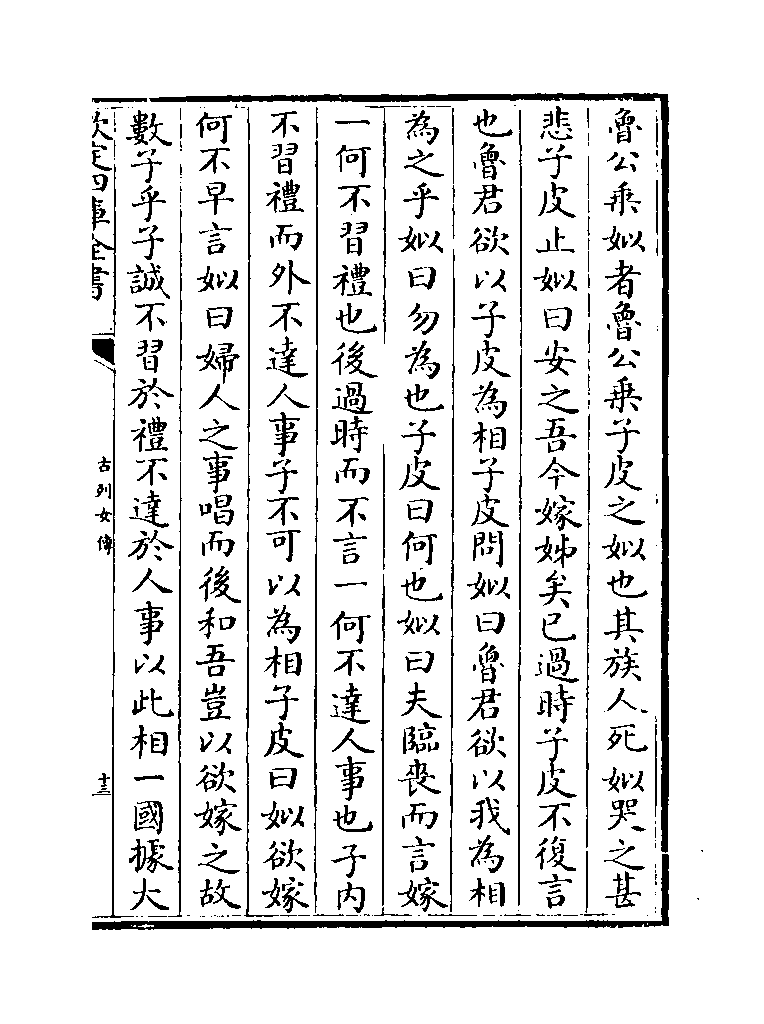 魯公乗姒者魯公乗子皮之姒也其族人死姒哭之甚
悲子皮止姒曰安之吾今嫁姊矣已過時子皮不復言
也魯君欲以子皮為相子皮問姒曰魯君欲以我為相
為之乎姒曰勿為也子皮曰何也姒曰夫臨喪而言嫁
一何不習禮也後過時而不言一何不達人事也子内
不習禮而外不達人事子不可以為相子皮曰姒欲嫁
何不早言姒曰婦人之事唱而後和吾豈以欲嫁之故
數子乎子誠不習於禮不達於人事以此相一國據大
欽定四庫全書
古列女傳
十三